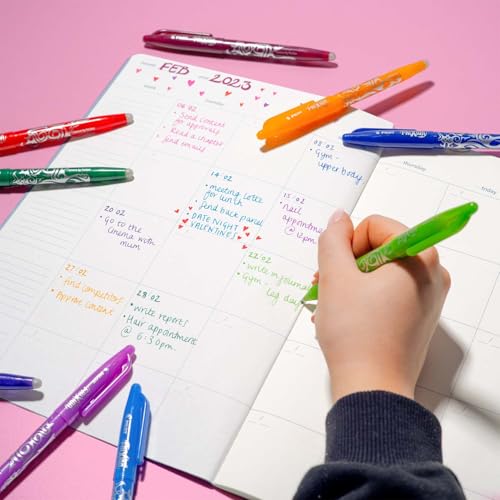 FEB 2023
06.02
• Send content
for approvals
• Read a chapter
• find emails
08.02
Gym -
upper body
14.02
• meeting Lotte
for lunch
• send back parcel
• DATE NIGHT
VALENTINES
15.02
• nail
appointment
@ 12pm
thursday
friday
20.02
• Go to the
cinema with
mum
22.02
• write in journal
• Gym -
leg day
27.02
• find competitors
• Approve content
28.02
• write reports
• Hair appointment
@ 6:30pm